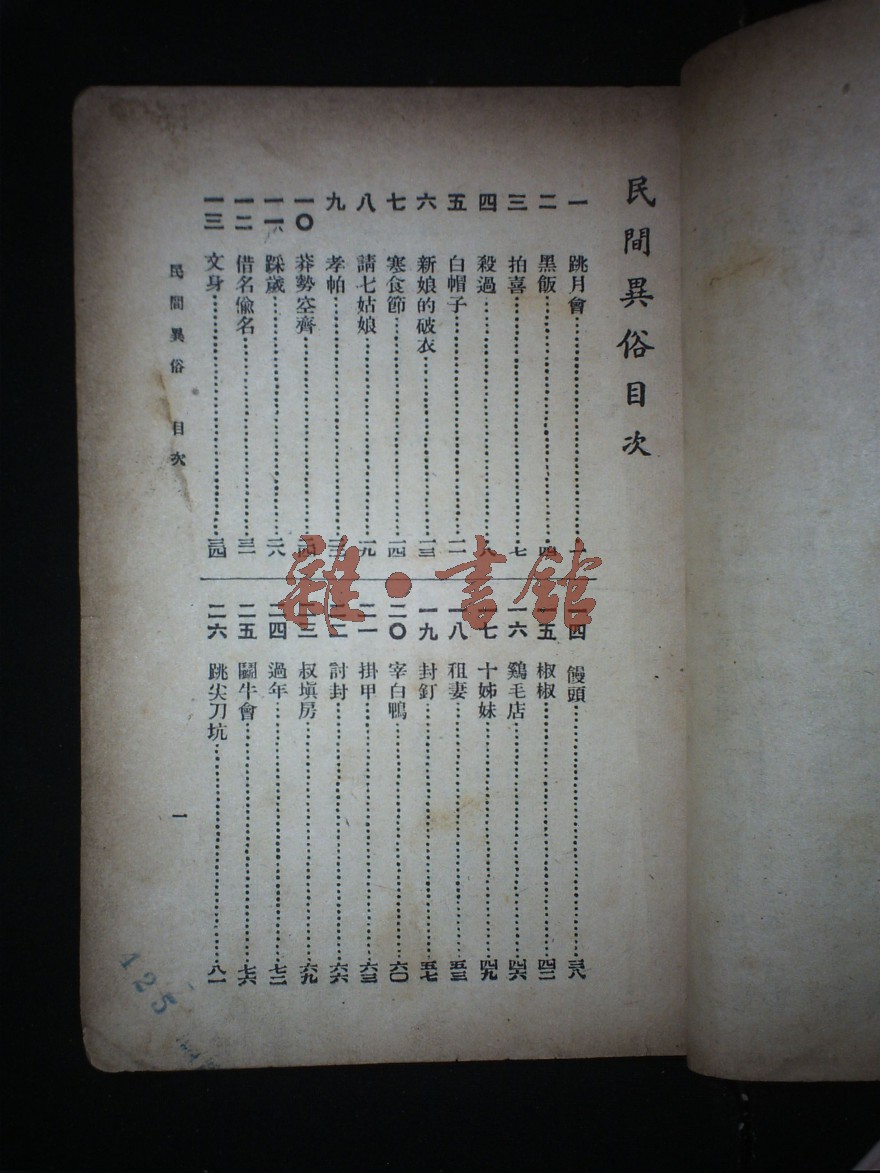 民間異俗目次
一 跳月會……一
二 黑飯……四
三 拍喜……七
四 殺過……八
五 白帽子……一一
六 新娘的破衣……一三
七 寒食節……一四
八 請七姑娘……一九
九 孝帕……二三
一〇 莽勢空齊……二四
一一 踩歲……二八
一二 借名偸名……三一
一三 文身……三四
一四 饅頭……三八
一五 椒椒……四二
一六 鷄毛店……四六
一七 十姊妹……四九
一八 租妻……五三
一九 封釘……五七
二〇 宰白鴨……六〇
二一 掛甲……六三
二二 討封……六六
二三 叔塡房……六九
二四 過年……七二
二五 鬭牛會……七六
二六 跳尖刀坑……八一
民間異俗 目次
一
雜·書館
125